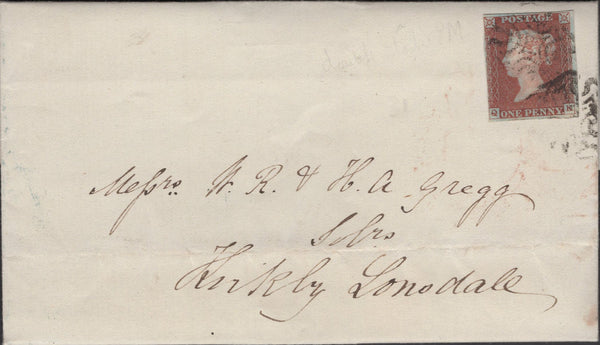 POSTAGE
Q ONE PENNY K
Messrs. W. R. & H. A. Gregg
Solrs
Kirkby Lonsdale